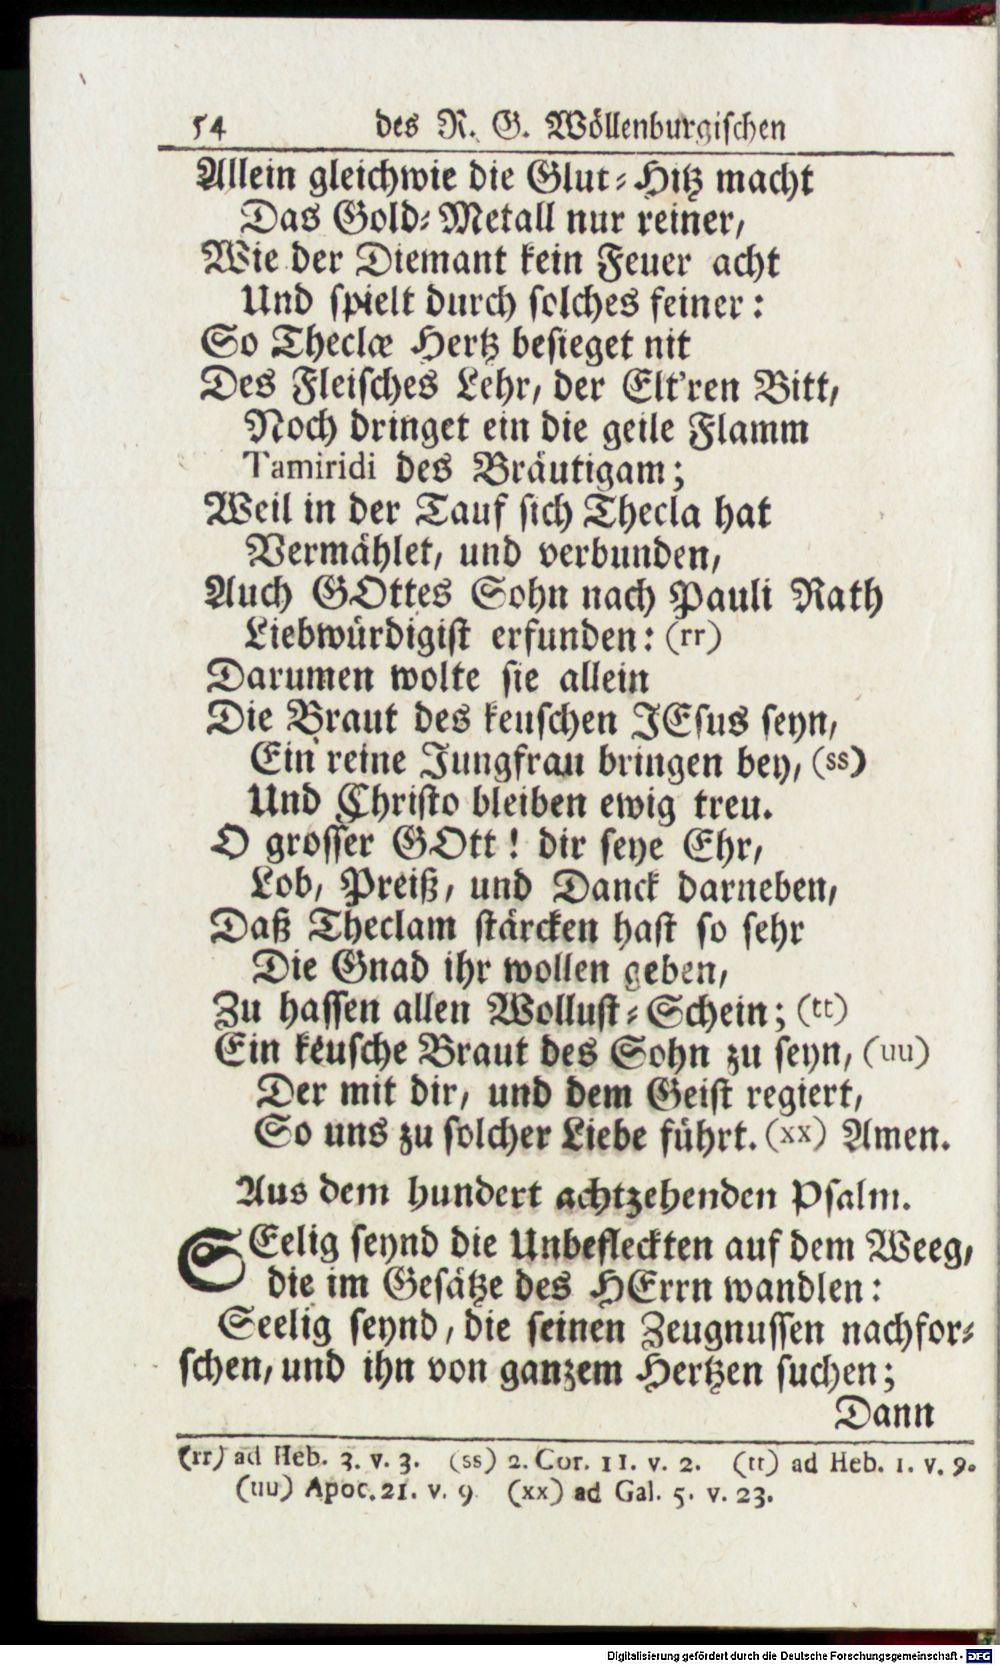 54 des R. G. Wöllenburgischen
Allein gleichwie die Glut-Hitz macht
Das Gold-Metall nur reiner,
Wie der Diemant kein Feuer acht
Und spielt durch solches feiner:
So Theclæ Hertz besieget nit
Des Fleisches Lehr, der Elt'ren Bitt,
Noch dringet ein die geile Flamm
Tamiridi des Bräutigam;
Weil in der Tauf sich Thecla hat
Vermählet, und verbunden,
Auch GOttes Sohn nach Pauli Rath
Liebwürdigist erfunden: (rr)
Darumen wolte sie allein
Die Braut des keuschen JEsus seyn,
Ein reine Jungfrau bringen bey, (ss)
Und Christo bleiben ewig treu.
O grosser GOtt! dir seye Ehr,
Lob, Preiß, und Danck darneben,
Daß Theclam stärcken hast so sehr
Die Gnad ihr wollen geben,
Zu hassen allen Wollust-Schein; (tt)
Ein keusche Braut des Sohn zu seyn, (uu)
Der mit dir, und dem Geist regiert,
So uns zu solcher Liebe führt. (xx) Amen.
Aus dem hundert achtzehenden Psalm.
SEelig seynd die Unbefleckten auf dem Weeg,
die im Gesätze des HErrn wandlen:
Seelig seynd, die seinen Zeugnussen nachfor-
schen, und ihn von ganzem Hertzen suchen;
Dann
(rr) ad Heb. 3. v. 3. (ss) 2. Cor. 11. v. 2. (tt) ad Heb. 1. v. 9.
(uu) Apoc. 21. v. 9 (xx) ad Gal. 5. v. 23.
Digitalisierung gefördert durch die Deutsche Forschungsgemeinschaft - DFG